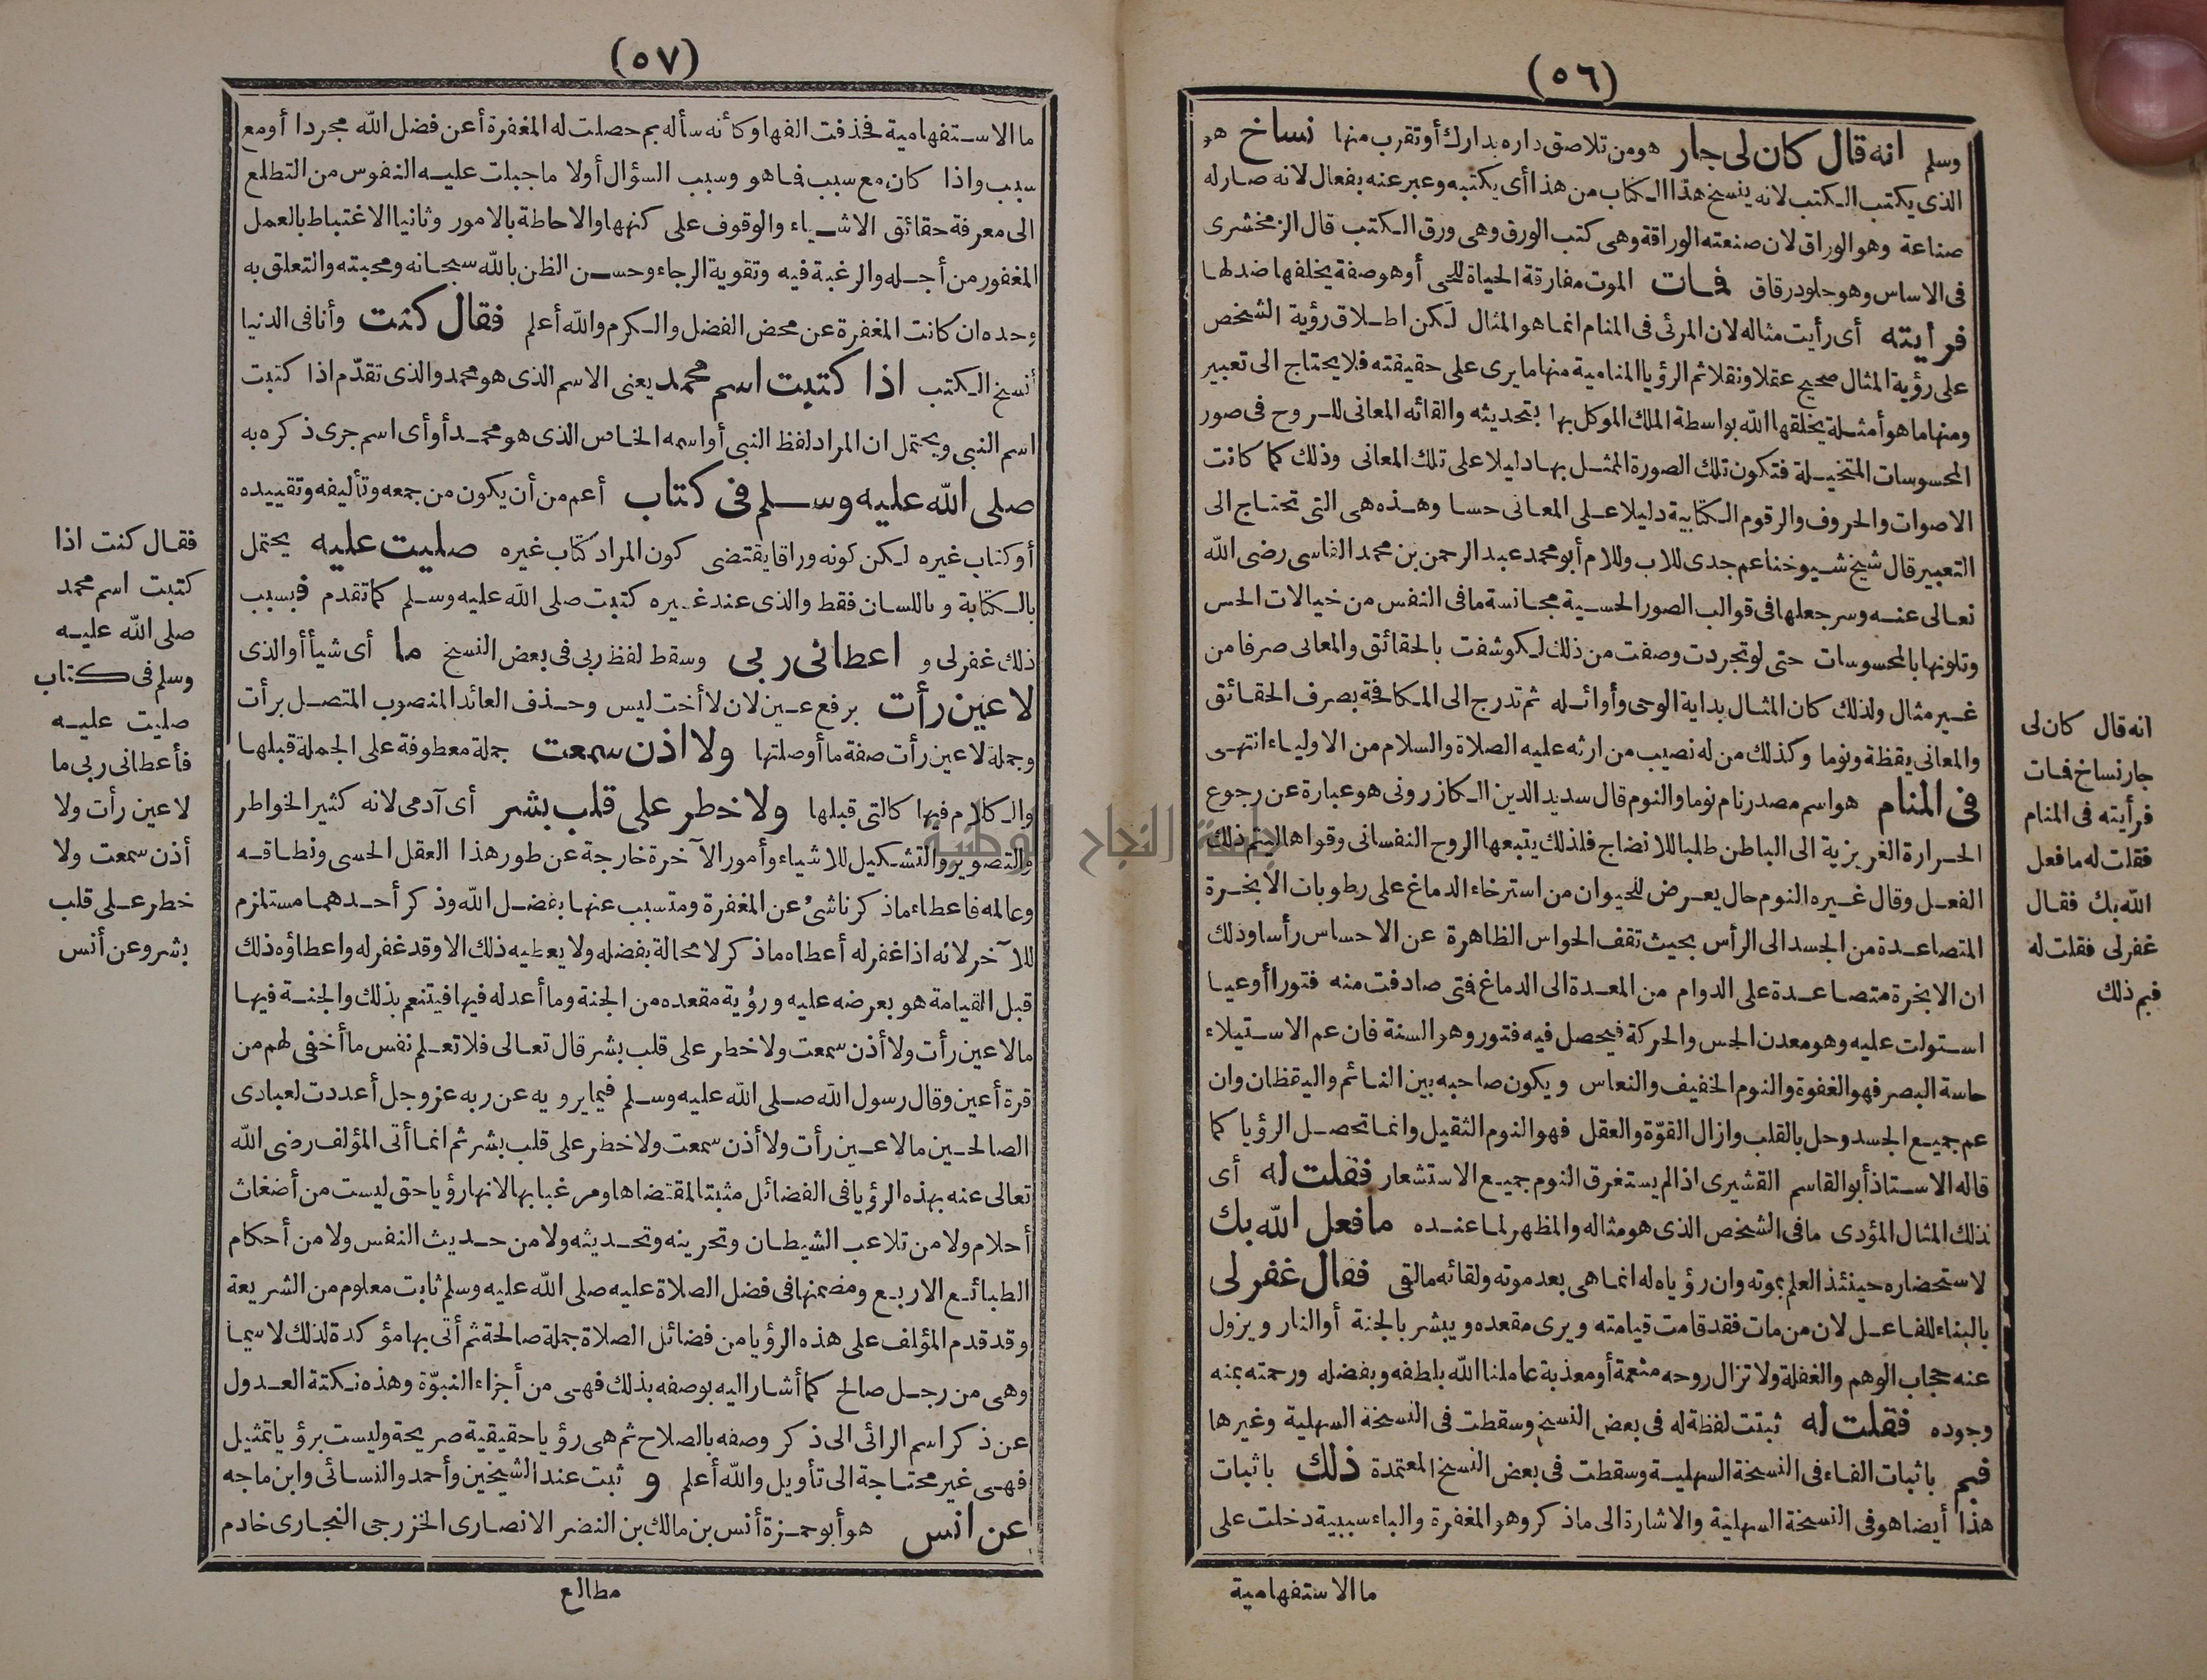 (٥٦)
وسلم انه قال كان لى جار هو من تلاصق داره بدارك أو تقرب منها نساخ هو
الذى يكتب الكتب لانه ينسخ هذا الكتاب من هذا أى يكتبه وعبر عنه بفعال لانه صار له
صناعة وهو الوراق لان صنعته الوراقة وهى كتب الورق وهى ورق الكتب قال الزمخشرى
فى الاساس وهو جلود رقاق فمات الموت مفارقة الحياة للحى أو هو صفة يخلفها ضد لها
فرأيته أى رأيت مثاله لان المرئى فى المنام انما هو المثال لكن اطلاق رؤية الشخص
على رؤية المثال صحيح عقلا ونقلا ثم الرؤيا المنامية منها ما يرى على حقيقته فلا يحتاج الى تعبير
ومنها ما هو أمثلة يخلقها الله بواسطة الملك الموكل بها بتحديثه والقائه المعانى للروح فى صور
المحسوسات المتخيلة فتكون تلك الصورة الممثل بها دليلا على تلك المعانى وذلك كما كانت
الاصوات والحروف والرقوم الكتابية دليلا على المعانى حسا وهذه هى التى تحتاج الى
التعبير قال شيخ شيوخنا عم جدى للاب وللام أبو محمد عبد الرحمن بن محمد الفاسى رضى الله
تعالى عنه وسر جعلها فى قوالب الصور الحسية مجانسة ما فى النفس من خيالات الحس
وتلونها بالمحسوسات حتى لو تجردت وصفت من ذلك لكوشفت بالحقائق والمعانى صرفا من
غير مثال ولذلك كان المثال بداية الوحى وأوائله ثم تدرج الى المكافحة بصرف الحقائق
والمعانى يقظة ونوما وكذلك من له نصيب من ارثه عليه الصلاة والسلام من الاولياء انتهى
فى المنام هو اسم مصدر نام نوما والنوم قال سديد الدين الكازرونى هو عبارة عن رجوع
الحرارة الغريزية الى الباطن طلبا للانضاج فلذلك يتبعها الروح النفسانى وقواها ليتم ذلك
الفعل وقال غيره النوم حال يعرض للحيوان من استرخاء الدماغ على رطوبات الأبخرة
المتصاعدة من الجسد الى الرأس بحيث تقف الحواس الظاهرة عن الاحساس رأسا وذلك
ان الابخرة متصاعدة على الدوام من المعدة الى الدماغ فتى صادفت منه فتورا أو عيا
استولت عليه وهو معدن الحس والحركة فيحصل فيه فتور وهو السنة فان عم الاستيلاء
حاسة البصر فهو الغفوة والنوم الخفيف والنعاس ويكون صاحبه بين النائم واليقظان وان
عم جميع الجسد وحل بالقلب وازال القوّة والعقل فهو النوم الثقيل وانما تحصل الرؤيا كما
قاله الاستاذ أبو القاسم القشيرى اذا لم يستغرق النوم جميع الاستشعار فقلت له أى
لذلك المثال المؤدى ما فى الشخص الذى هو مثاله والمظهر لما عنده ما فعل الله بك
لاستحضاره حينئذ العلم بموته وان رؤياه له انما هى بعد موته ولقائه ما لقى فقال غفر لى
بالبناء للفاعل لان من مات فقد قامت قيامته ويرى مقعده ويبشر بالجنة أو النار ويزول
عنه حجاب الوهم والغفلة ولا تزال روحه منعمة أو معذبة عاملنا الله بلطفه وبفضله ورحمته بمنه
وجوده فقلت له ثبتت لفظة له فى بعض النسخ وسقطت فى النسخة السهلية وغيرها
فبم باثبات الفاء فى النسخة السهلية وسقطت فى بعض النسخ المعتمدة ذلك باثبات
هذا أيضا هو فى النسخة السهلية والاشارة الى ما ذكر وهو المغفرة والباء سببية دخلت على
ما الاستفهامية
انه قال كان لى
جار نساخ فمات
فرأيته فى المنام
فقلت له ما فعل
الله بك فقال
غفر لى فقلت له
فبم ذلك
(٥٧)
ما الاستفهامية فحذفت الفها وكأنه سأله بم حصلت له المغفرة أعن فضل الله مجردا أو مع
سبب واذا كان مع سبب فما هو وسبب السؤال أولا ما جبلت عليه النفوس من التطلع
الى معرفة حقائق الاشياء والوقوف على كنهها والاحاطة بالامور وثانيا الاغتباط بالعمل
المغفور من أجله والرغبة فيه وتقوية الرجاء وحسن الظن بالله سبحانه ومحبته والتعلق به
وحده ان كانت المغفرة عن محض الفضل والكرم والله أعلم فقال كنت وأنا فى الدنيا
أنسخ الكتب اذا كتبت اسم محمد يعنى الاسم الذى هو محمد والذى تقدّم اذا كتبت
اسم النبى ويحتمل ان المراد لفظ النبى أو اسمه الخاص الذى هو محمد أو أى اسم جرى ذكره به
صلى الله عليه وسلم فى كتاب أعم من أن يكون من جمعه وتأليفه وتقييده
أو كتاب غيره لكن كونه وراقا يقتضى كون المراد كتاب غيره صليت عليه يحتمل
بالكتابة وباللسان فقط والذى عند غيره كتبت صلى الله عليه وسلم كما تقدم فبسبب
ذلك غفر لى و اعطانى ربى وسقط لفظ ربى فى بعض النسخ ما أى شيأ أو الذى
لا عين رأت برفع عين لان لا أخت ليس وحذف العائد المنصوب المتصل برأت
وجملة لا عين رأت صفة ما أو صلتها ولا اذن سمعت جملة معطوفة على الجملة قبلها
والكلام فيها كالتى قبلها ولا خطر على قلب بشر أى آدمى لانه كثير الخواطر
والتصوير والتشكيل للاشياء وأمور الآخرة خارجة عن طور هذا العقل الحسى ونطاقه
وعالمه فاعطاء ما ذكر ناشئ عن المغفرة ومتسبب عنها بفضل الله وذكر أحدهما مستلزم
للآخر لانه اذا غفر له أعطاه ما ذكر لا محالة بفضله ولا يعطيه ذلك الا وقد غفر له واعطاؤه ذلك
قبل القيامة هو بعرضه عليه ورؤية مقعده من الجنة وما أعد له فيها فيتنعم بذلك والجنة فيها
ما لا عين رأت ولا أذن سمعت ولا خطر على قلب بشر قال تعالى فلا تعلم نفس ما أخفى لهم من
قرة أعين وقال رسول الله صلى الله عليه وسلم فيما يرويه عن ربه عز وجل أعددت لعبادى
الصالحين ما لا عين رأت ولا أذن سمعت ولا خطر على قلب بشر ثم انما أتى المؤلف رضى الله
تعالى عنه بهذه الرؤيا فى الفضائل مثبتا لمقتضاها ومرغبا بها لانها رؤيا حق ليست من أضغاث
أحلام ولا من تلاعب الشيطان وتحزينه وتحديثه ولا من حديث النفس ولا من أحكام
الطبائع الاربع ومضمنها فى فضل الصلاة عليه صلى الله عليه وسلم ثابت معلوم من الشريعة
وقد قدم المؤلف على هذه الرؤيا من فضائل الصلاة جملة صالحة ثم أتى بها مؤكدة لذلك لا سيما
وهى من رجل صالح كما أشار اليه بوصفه بذلك فهى من أجزاء النبوّة وهذه نكتة العدول
عن ذكر اسم الرائى الى ذكر وصفه بالصلاح ثم هى رؤيا حقيقية صريحة وليست برؤيا تمثيل
فهى غير محتاجة الى تأويل والله أعلم و ثبت عند الشيخين وأحمد والنسائى وابن ماجه
عن انس هو أبو حمزة أنس بن مالك بن النضر الانصارى الخزرجى النجارى خادم
مطالع
فقال كنت اذا
كتبت اسم محمد
صلى الله عليه
وسلم فى كتاب
صليت عليه
فأعطانى ربى ما
لا عين رأت ولا
أذن سمعت ولا
خطر على قلب
بشر وعن أنس
جامعة النجاح الوطنية